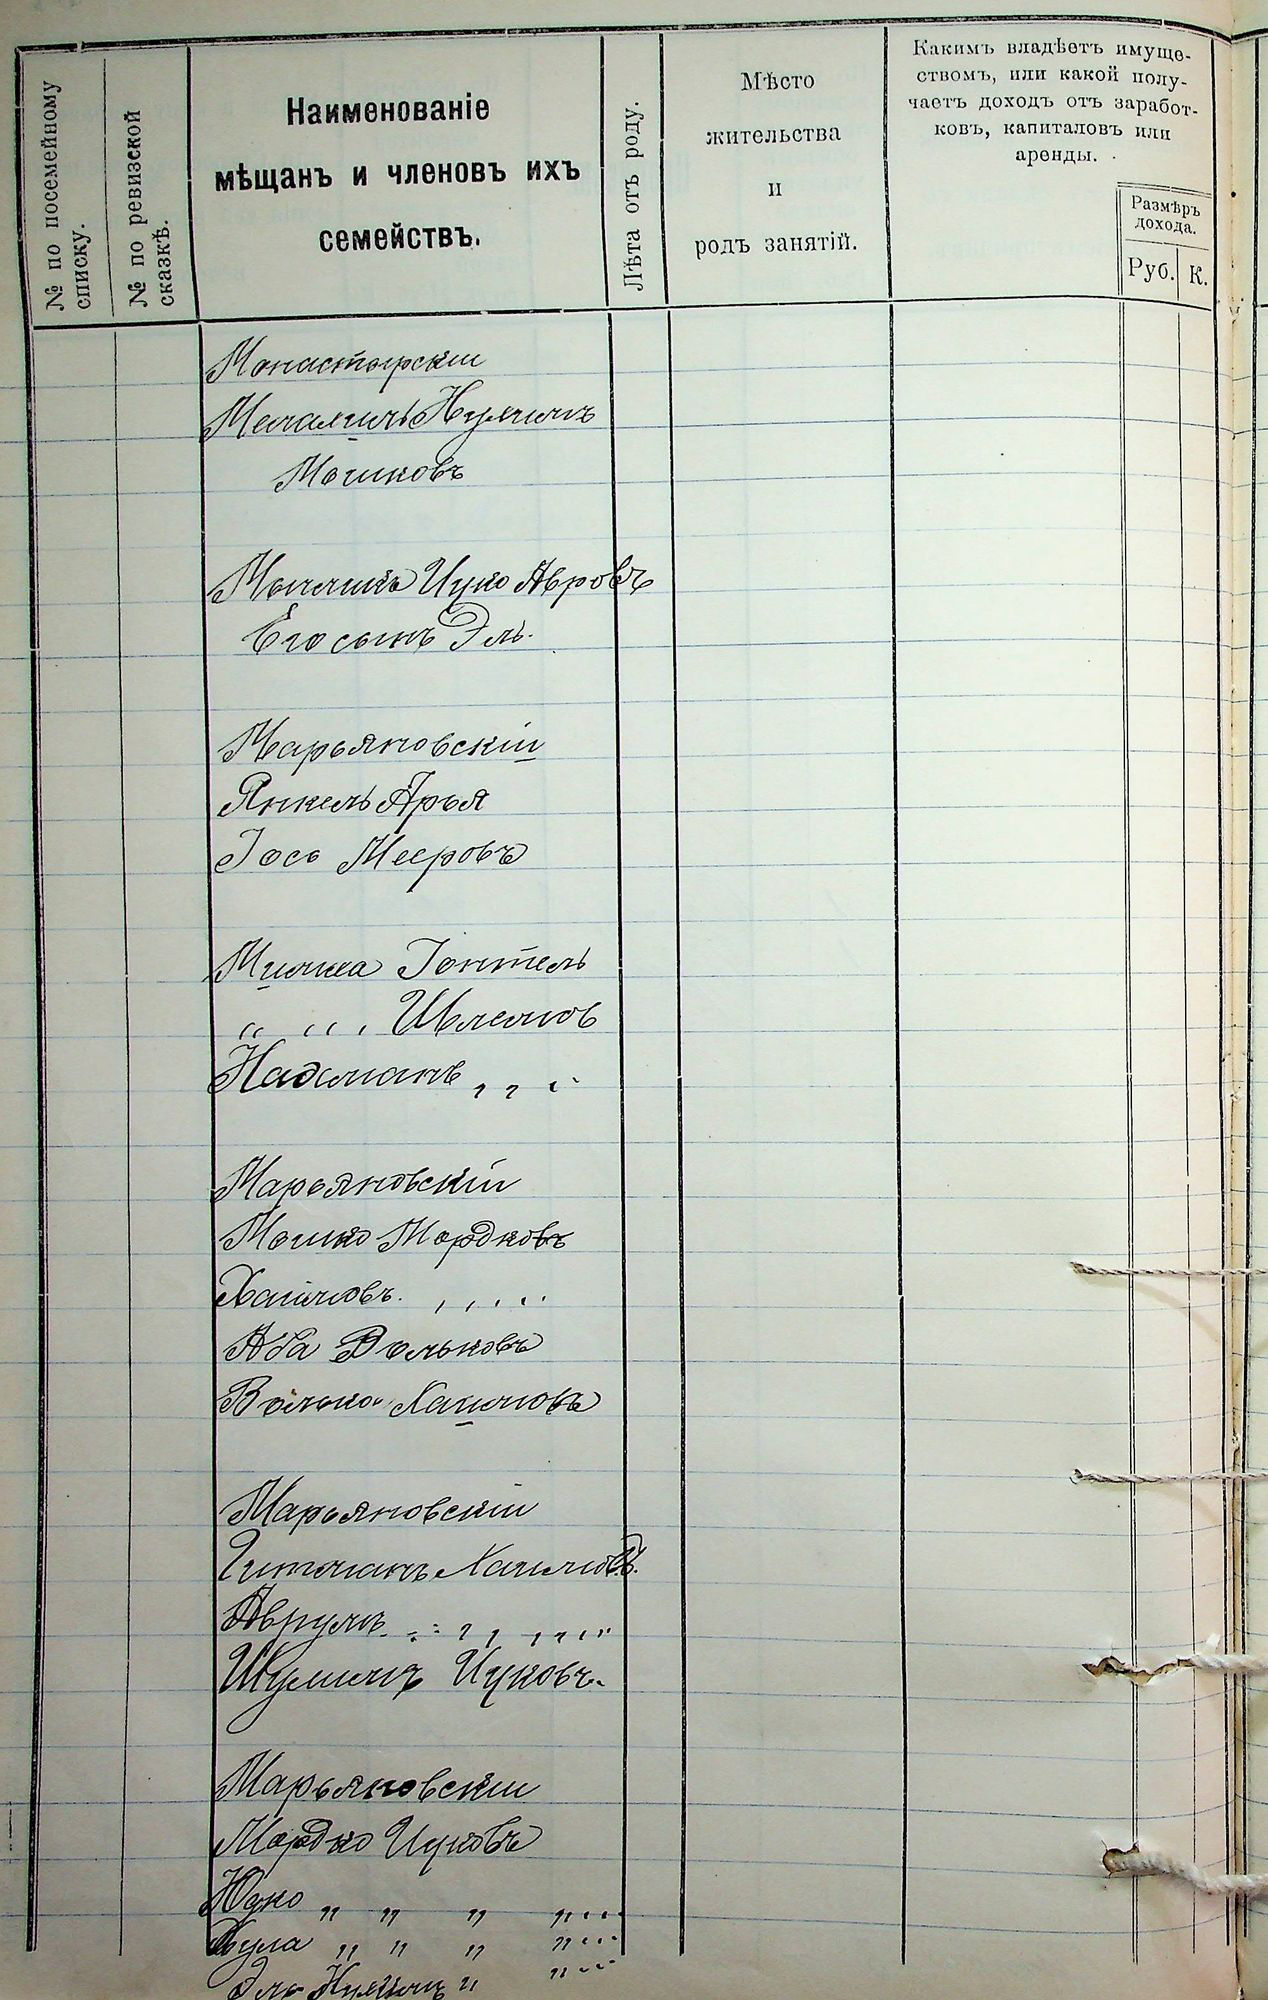 № по посемейному
списку.
№ по ревизской
сказкѣ.
Наименованіе
мѣщанъ и членовъ ихъ
семействъ.
Лѣта отъ роду.
Мѣсто
жительства
и
родъ занятій.
Какимъ владѣетъ имуще-
ствомъ, или какой полу-
чаетъ доходъ отъ заработ-
ковъ, капиталовъ или
аренды.
Размѣръ
дохода.
Руб.
К.
Монастырскій
Мошковъ
Ицко Авровъ
Его сынъ Эль.
Марьяновскій
Янкель Арья
Іось Мееровъ
Іонтель
" " "
Нахманъ " " "
Марьяновскій
Мошко Мордковъ
Хаимовъ " " "
Аба Вольковъ
Волько Хаимовъ
Марьяновскій
Гитманъ Хаимовъ.
Аврумъ " " " "
Шулимъ Ицковъ.
Марьяновскій
Мордко Ицковъ
Юдко " " " "
" " " "
Эль "